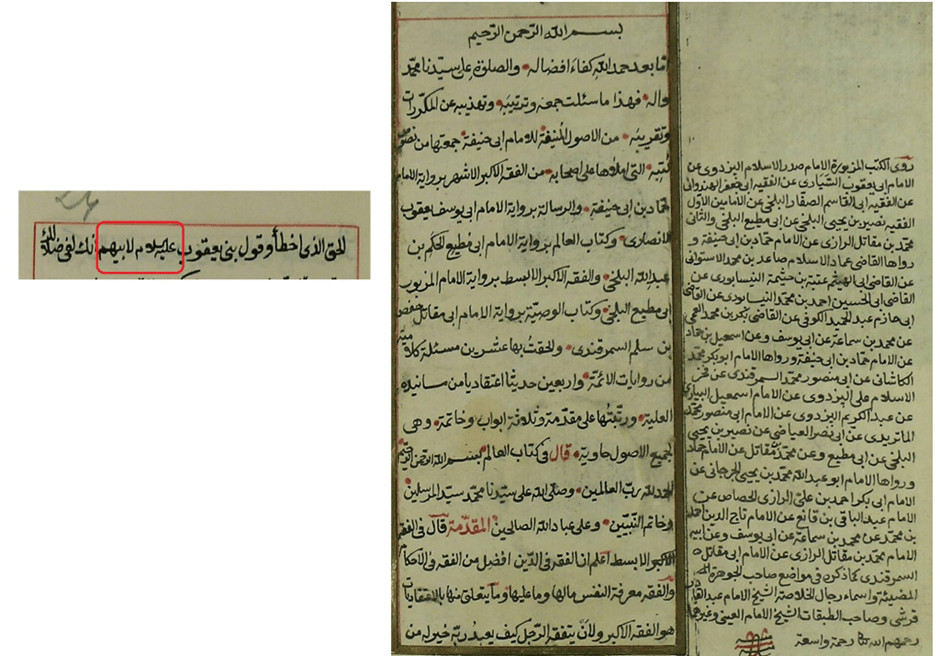 للحق الذى اخطأ وقول بنى يعقوب عليلام لابيهم انك لفى ضلالك
بسم الله الرحمن الرحيم
اما بعد حمد الله كفاء افضاله والصلوة على سيدنا محمد
واله فهذا ما سئلت جمعه وترتيبه وتهذيبه عن المكررات
وتقريبه من الاصول المنيفة للامام ابى حنيفة جمعتها من نصوص
كتبه التى املاها على اصحابه من الفقه الاكبر الاشهر برواية الامام
حماد بن ابى حنيفة والرسالة برواية الامام ابى يوسف يعقوب
الانصارى وكتاب العالم برواية الامام ابى مطيع الحكم بن
عبد الله البلخى والفقه الاكبر الابسط برواية الامام المزبور
ابى مطيع البلخى وكتاب الوصية برواية الامام ابى مقاتل حفص
بن سلم السمرقندى والحقت بها عشرين مسئلة كلامية
من روايات الائمة واربعين حديثا اعتقاديا من مسانيده
العلية ورتبتها على مقدمة وثلاثة ابواب وخاتمة وهى
لجميع الاصول حاوية قال فى كتاب العالم بسم الله الرحمن الرحيم
الحمد لله رب العالمين وصلى الله على سيدنا محمد سيد المرسلين
وخاتم النبيين وعلى عباد الله الصالحين المقدمة قال فى الفقه
الاكبر الابسط اعلم ان الفقه فى الدين افضل من الفقه فى الاحكام
والفقه معرفة النفس مالها وما عليها وما يتعلق منها بالاعتقاديات
هو الفقه الاكبر ولأن يتفقه الرجل كيف يعبد ربه خير له من
روى الكتب المزبورة الامام صدر الاسلام البزدوى عن
الامام ابى يعقوب السيارى عن الفقيه ابى جعفر الهندوانى
عن الفقيه ابى القاسم الصفار البلخى عن الامامين الاول
الفقيه نصير بن يحيى البلخى عن ابى مطيع البلخى والثانى
محمد بن مقاتل الرازى عن الامام حماد بن ابى حنيفة و
رواها القاضى عماد الاسلام صاعد بن محمد الاستوائى
عن القاضى ابى الهيثم عتبة بن خيثمة النيسابورى عن
القاضى ابى الحسين احمد بن محمد النيسابورى عن القاضى
ابى حازم عبد الحميد الكوفى عن القاضى بكر بن محمد العمى
عن محمد بن سماعة عن ابى يوسف وعن اسمعيل بن حماد
عن الامام حماد بن ابى حنيفة ورواها الامام ابو بكر محمد
الكاشانى عن ابى منصور محمد السمرقندى عن فخر
الاسلام على البزدوى عن الامام اسمعيل البيارى
عن عبد الكريم البزدوى عن الامام ابى منصور محمد
الماتريدى عن ابى نصر العياضى عن نصير بن يحيى
البلخى عن ابى مطيع وعن محمد بن مقاتل عن الامام حماد
ورواها الامام ابو عبد الله محمد بن يحيى الجرجانى عن
الامام ابى بكر احمد بن على الرازى الخصاص عن
الامام عبد الباقى بن قانع عن الامام تاج الدين احمد
بن محمد عن محمد بن سماعة عن ابى يوسف وعن
الامام محمد بن مقاتل الرازى عن الامام ابى مقاتل
السمرقندى كما ذكره فى مواضع صاحب الجوهرة
المضيئة واسماء رجال الخلاصة الشيخ الامام عبد القادر
قرشى وصاحب الطبقات الشيخ الامام العينى وغيرهما
رحمهم الله تعا رحمة واسعة